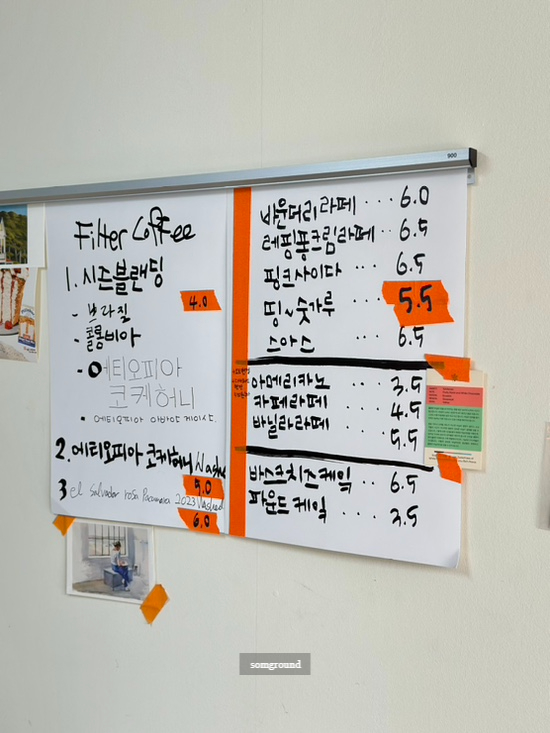 Filter Coffee
1. 시즌블랜딩
4.0
- 브라질
- 콜롬비아
- 에티오피아
코케허니
• 에티오피아
2. 에티오피아 코케허니 Washed
5.0
3 el Salvador rosa Pacamara 2023 Washed
6.0
바운더리라떼 ··· 6.0
레핑퐁크림라떼 ·· 6.5
핑크사이다 ··· 6.5
띵~숫가루 ··· 5.5
스아스 ··· 6.5
아메리카노 ··· 3.5
카페라떼 ··· 4.5
바닐라라떼 ··· 5.5
바스크치즈케익 ·· 6.5
파운드케익 ··· 3.5
900
somground